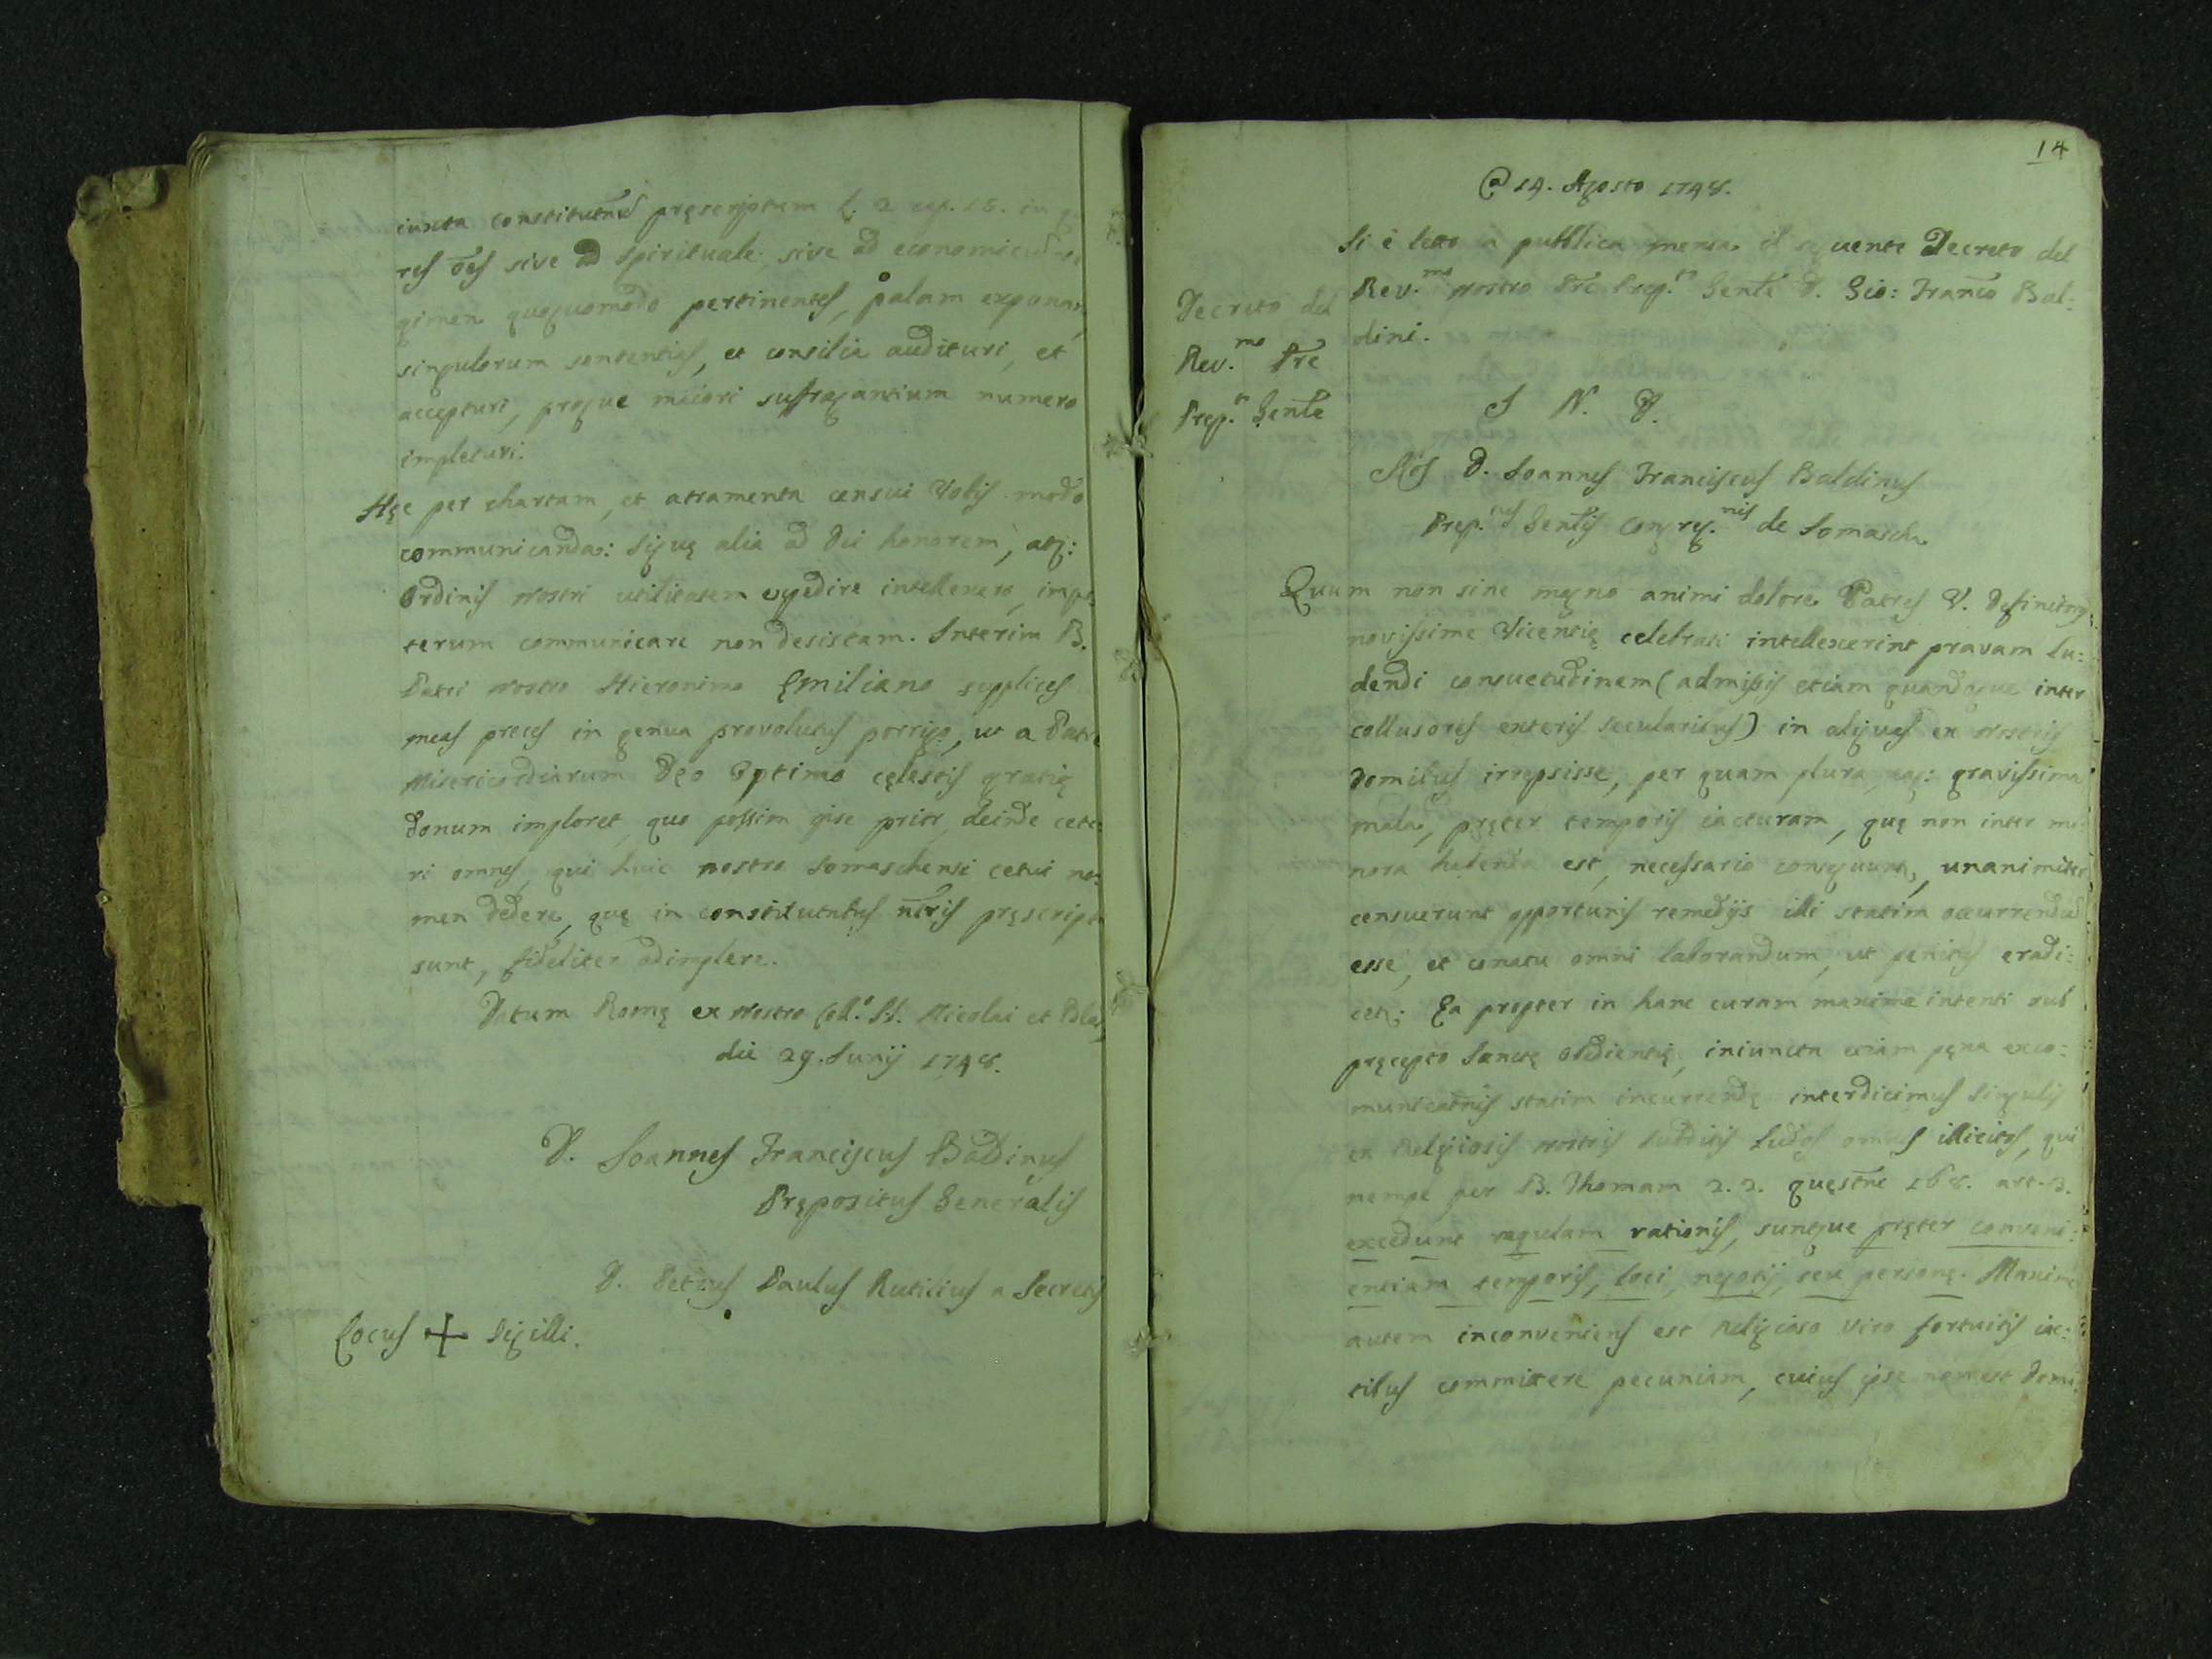 iuxta constitutnũ pręscriptam l. 2 cap. 15. in qu
res ões sive ad spirituale, sive ad economicũ re
gimen quoquomodo pertinentes, palam exponant,
singulorum sententias, et consilia audituri, et
accepturi, proque maiori suffragantium numero
impleturi.
Hęc per chartam, et atramenta censui Vobis modo
communicanda: Siquę alia ad Dei honorem, atq:
Ordinis Nostri utilitatem expedire intellexero,
terum communicare non desistam. Interim B.
Patri Nostro Hieronimo Ęmiliano supplices
meas preces in genua provolutus porrigo, ut a Patre
Misericordiarum Dęo Optimo cęlestis gratię
donum imploret, quo possim ipse prior, deinde cete
ri omnes, qui huic nostro Somaschensi cetui no:
men dedere, quę in constitutnbus nr̃is pręscripta
sunt, fideliter adimplere.
Datum Romę ex Nostro Coll.º SS. Nicolai et Blas,
die 29. Junij 1748.
D. Joannes Franciscus Baldinus
Prępositus Generalis
D. Petrus Paulus Rutilius a Secretis
Locus + Sigilli.
14
@ 14. Agosto 1748.
Si è letto a pubblica mensa il seguente Decreto del
Rev.mo Nostro Prẽ Prep.to Genl̃e D. Gio: Franc̃o Bal:
dini.
Decreto del
Rev.mo Prẽ
Prep.to Genl̃e
I N. D.
Nos D. Joannes Franciscus Baldinus
Prep.tus Genl̃is Congreg.nis de Somascha
Quum non sine magno animi dolore Patres V. Definitrij
novissime Vicentię celebrati intellexerint pravam lu:
dendi consuetudinem (admissis etiam quandoque inter
collusores exteris secularibus) in aliquas ex Nostris
domibus irrepsisse, per quam plura, eaq: gravissima
mala, pręter temporis iacturam, quę non inter mi
nora habenda est, necessario consequunt, unanimiter
censuerunt opportunis remedijs illi statim occurrendũ
esse, et conatu omni laborandum, ut penitus eradi:
cet; Ea propter in hanc curam maxime intenti sub
pręcepto Sanctę Obedientię, iniuncta etiam pęna exco:
municatnis statim incurrendę interdicimus singulis
ex Religiosis nostris subditis ludos omnes illicitos, qui
nempe per B. Thomam 2. 2. quęstñe 168. art. 3.
excedunt regulam rationis, suntque pręter conveni:
entiam temporis, loci, negotij, seu personę. Maxime
autem inconveniens est Religioso viro fortuitis iac:
tibus committere pecuniam, cuius ipse non est Domi